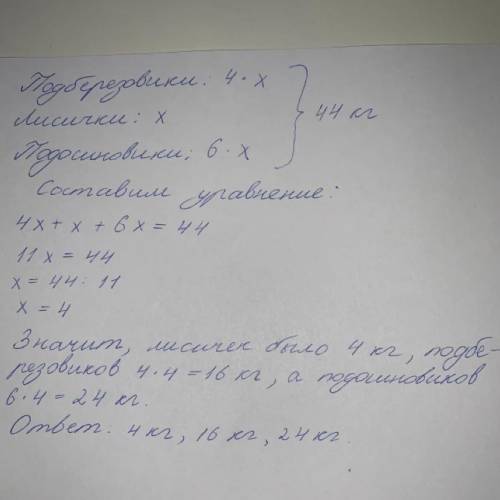 Подберезовики: 4 · х
Лисички: х
Подосиновики: 6 · х
44 кг
Составим уравнение:
4х + х + 6х = 44
11х = 44
х = 44 : 11
х = 4
Значит, лисичек было 4 кг, подбе-
резовиков 4·4 = 16 кг, а подосиновиков
6·4 = 24 кг.
Ответ: 4 кг, 16 кг, 24 кг.